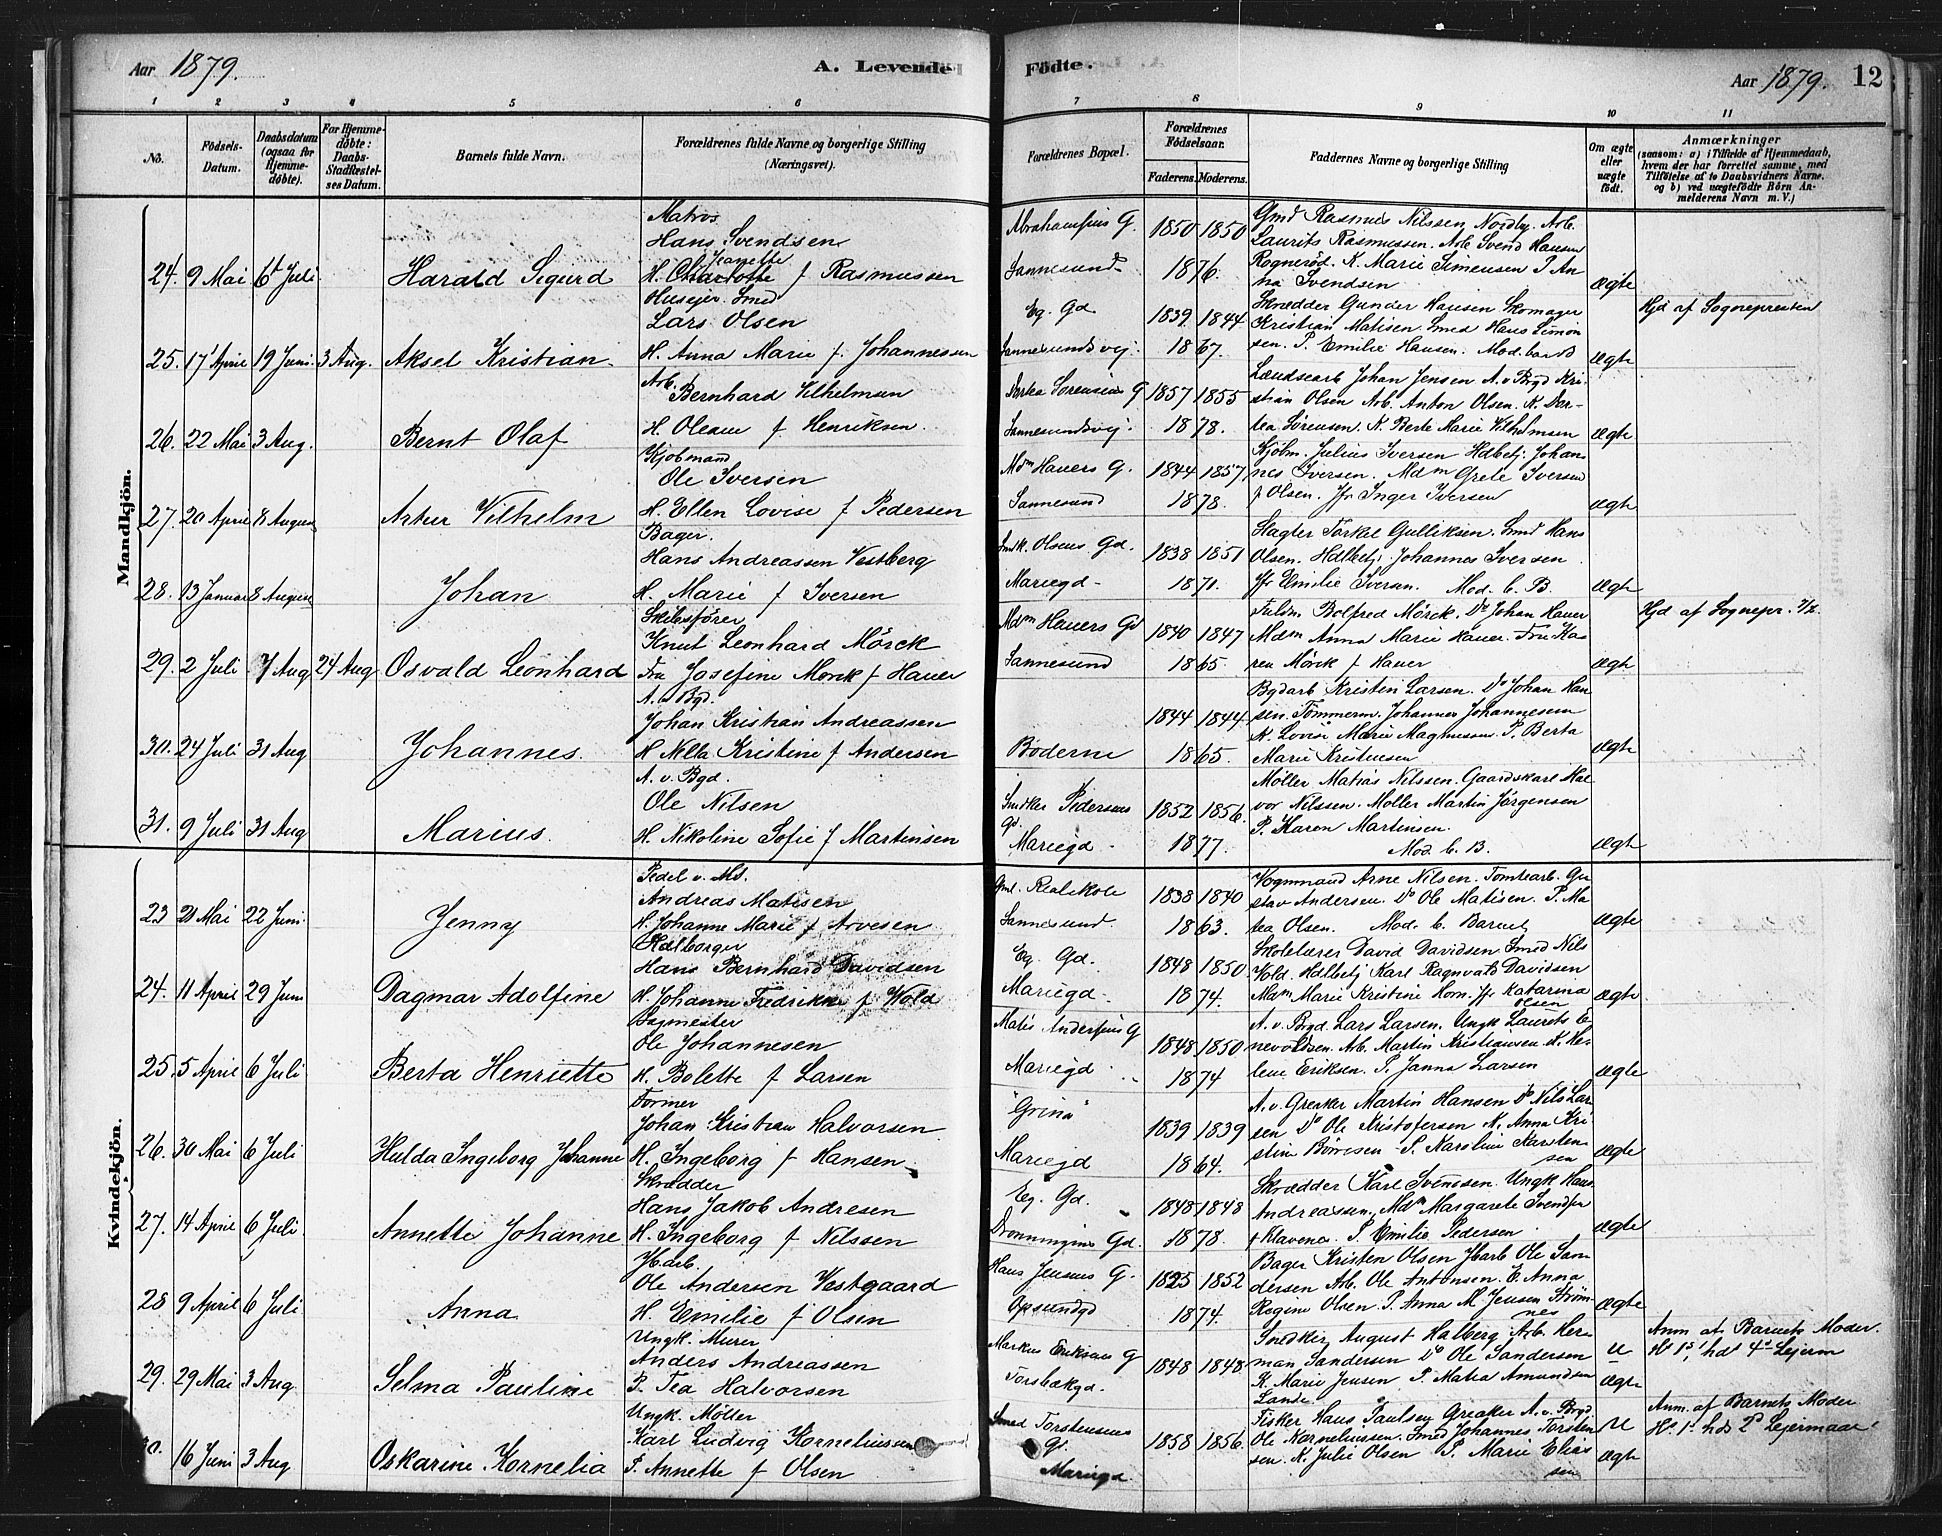 Aar 1879.
A. Levende Födte.
Aar 1879. 12
1 2 3 4 5 6 7 8 9 10 11
No.
Födsels-Datum.
Daabsdatum (ogsaa for Hjemme-döbte).
For Hjemme-döbte: Daabs-Stadfæstel-ses Datum.
Barnets fulde Navn.
Forældrenes fulde Navne og borgerlige Stilling (Næringsvei).
Forældrenes Bopæl.
Forældrenes Födselsaar.
Faderens. Moderens.
Faddernes Navne og borgerlige Stilling
Om ægte eller uægte födt.
Anmærkninger
(saasom: a) i Tilfælde af Hjemmedaab, hvem der har forrettet samme, med Tilföielse af to Daabsvidners Navne, og b) ved uægtefödte Börn An-melderens Navn m.V.)
Mandkjön.
24. 9 Mai 6t Juli Harald Sigurd
Matros
Hans Svendsen
Jeanette
H. Charlotte f Rasmussen
Abrahamsens G.
Sannesund
1850 1850
1876.
Gmd Rasmus Nilssen Nordby. Arb.
Laurits Rasmussen. Arb Svend Hansen
Rognerød. K. Marie Simensen P An-
na Svendsen
ægte
25. 17 April 19 Juni 3 Aug. Aksel Kristian
Huseyer. Smed
Lars Olsen
H. Anna Marie f. Johannessen
Eg. Gd
Sannesundsvej.
1839 1844
1867.
Skrædder Gunder Hansen Skomager
Kristian Matisen. Smed Hans Simon
sen. P. Emilie Hansen. Mod. bar B
ægte
Hjd af Sognepresten
26. 22 Mai 3 Aug. Bernt Olaf
Arb.
Bernhard Vilhelmsen
H. Oleane f Henriksen.
Dortea Sorensens G
Sannesundsvej.
1857 1855
1878.
Landsearb Johan Jensen A. v Bygd Kri-
stian Olsen Arb. Anton Olsen. K. Dor-
tea Sørensen. K. Berte Marie Vilhelmsen
ægte
27. 20 April 8 August Artur Vilhelm
Kjøbmand
Ole Iversen
H. Ellen Lovise f Pedersen
Mdm Hauers G.
Sannesund
1844 1857
1878.
Kjøbm. Julius Iversen Hdbetj. Johan-
nes Iversen. Mdm Grete Iversen
f Olsen. Jfr Inger Iversen
ægte
28. 13 Januar 8 August Johan
Bager.
Hans Andreassen Vestberg
H. Marie f Iversen
Smk. Olsens Gd.
Mariegd
1838 1851
1871.
Slagter Torkel Gulliksen. Smd Hans
Olsen. Hdlbetj. Johannes Iversen
Jfr Emilie Iversen. Mod. b. B.
ægte
29. 2 Juli 7 Aug 24 Aug Osvald Leonhard
Skibsfører
Knut Leonhard Mörck
Fru Josefine Mörck f Hauer
Mdm Hauers Gd
Sannesund
1840 1847
1865
Fuldm. Bolfred Mörck. Do Johan Hauer
Mdm Anna Marie Hauer. Fru Ka-
ren Mörck f Hauer
ægte
Hjd af Sognepr.
30. 24 Juli 31 Aug Johannes.
A. v Bgd.
Johan Kristian Andreassen
H Nella Kristine f Andersen
Boderne
1844 1844
1865.
Bgdarb Kristen Larsen. Do Johan Han
sen. Tømmerm. Johannes Johannesen
K. Lovise Marie Magnussen. P. Berta
Marie Kristensen
ægte
31. 9 Juli 31 Aug Marius.
A. v. Bgd.
Ole Nilsen
H. Nikoline Sofie f Martinsen
Smdker Pedersens
Gd.
Mariegd
1852 1856.
1877.
Møller Matias Nilssen. Gaardskarl Hal
vor Nilssen. Møller Martin Jörgensen
P. Karen Martinsen.
Mod. b. B.
ægte
Kvindekjön.
23 21 Mai 22 Juni. Jenny
Pedel v. Md.
Andreas Matisen
H. Johanne Marie f Arvesen
Gml. Realskole
Sannesund.
1838 1840
1863.
Vognmand Arne Nilsen. Tomtearb. Gu
stav Andersen. Do Ole Matisen. P. Ma
tea Olsen. Mod. b. Barnet
ægte
24. 11 April 29 Juni Dagmar Adolfine
Hdlborger
Hans Bernhard Davidsen
H. Johanne Fredrikke f Wold
Eg. Gd.
Mariegd
1848 1850
1874.
Skolelærer David Davidsen Smed Nils
Wold. Hdlbetj Karl Ragnvald Davidsen
Mdm Marie Kristine Horn. Jfr Katarina
Olsen
ægte
25. 5 April 6 Juli Berta Henriette
Sagmester
Ole Johannesen
H. Bolette f Larsen
Matis Andersens G
Mariegd
1848 1850
1874
A. v. Bygd. Lars Larsen. Ungk Laurits E-
nevoldsen. Arb. Martin Kristiansen K. He-
lene Eriksen. P. Janna Larsen
ægte
26. 30 Mai 6 Juli Hulda Ingeborg Johanne
Former
Johan Kristian Halvorsen
H. Ingeborg f Hansen
"Grina"
Mariegd
1839 1839
1864.
A. v. Greaker Martin Hansen Do Nils Lar
sen Do Ole Kristofersen K. Anna Kri
stine Børresen P. Karoline Karsten
sen
ægte
27. 14 April 6 Juli. Annette Johanne
Skrædder
Hans Jakob Andresen
H. Ingeborg f Nilssen
Eg. Gd.
Dronningens Gd.
1848 1848
1878.
Skrædder Karl Svendsen. Ungk Hans
Andreassen, Mdm Margarete Svendsen
f Klavenes. P. Emilie Pedersen
ægte
28 9 April 6 Juli Anna
Hdarb.
Ole Andersen Vestgaard
H. Emilie f Olsen
Hans Jensens G.
Opsundgd
1825 1852
1874.
Bager Kristen Olsen Hdarb Ole San-
dersen Arb. Ole Antonsen. E. Anna
Regine Olsen P. Anna M. Jensen Strøm
nes
ægte
29. 29 Mai 3 Aug Selma Pauline
Ungk. Murer
Anders Andreassen
P. Tea Halvorsen
Markus Eriksens G
Torsbækgd.
1848 1848
Snedker August Halberg. Arb. Her-
man Sandersen Do Ole Sandersen
K. Marie Jensen P. Matea Amundsen
Lande
u
ægte
Anm. af Barnets Moder.
H. 1s, hds 4d Lejerm
30. 16 Juni 3 Aug Oskarine Kornelia
Ungk. Møller
Karl Ludvig Korneliussen
P. Annette f Olsen
Smed Torstensens
G.
Mariegd
1858 1856.
Fisker Hans Paulsen Greåker A. v. Bygd
Ole Korneliussen. Smed Johannes Torsten
sen. K. Julie Olsen P. Marie Elias
sen
U
ægte
Anm. af Barnets Moder
H. 1s hds 2d Lejermaal